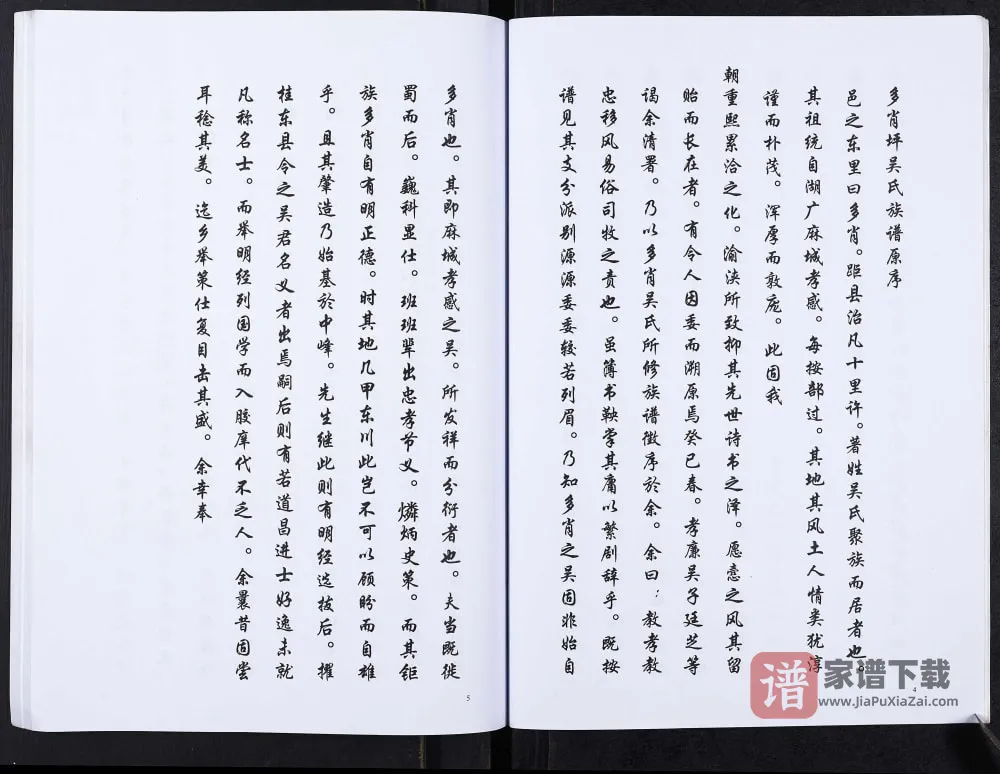 多肖坪吴氏族谱原序
邑之东里曰多肖。距县治凡十里许。著姓吴氏聚族而居者也。
其祖统自湖广麻城孝感。每按部过。其地其风土人情类犹淳
谨而朴茂。浑厚而敦庞。此固我
朝重熙累洽之化。渝浃所致抑其先世诗书之泽。愿悫之风其留
贻而长在者。有令人因委而溯原焉癸巳春。孝廉吴子廷芝等
谒余清署。乃以多肖吴氏所修族谱徵序於余。余曰：教孝教
忠移风易俗司牧之责也。虽簿书鞅掌其庸以繁剧辞乎。既按
谱见其支分派别源源委委较若列眉。乃知多肖之吴固非始自
4
多肖也。其即麻城孝感之吴。所发祥而分衍者也。夫当既徙
蜀而后。巍科显仕。班班辈出忠孝节义。燐炳史策。而其钜
族多肖自有明正德。时其地几甲东川此岂不可以顾盼而自雄
乎。且其肇造乃始基於中峰。先生继此则有明经选拔后。擢
桂东县令之吴君名义者出焉嗣后则有若道昌进士好逸未就
凡称名士。而举明经列国学而入胶庠代不乏人。余曩昔固尝
耳稔其美。迄乡举策仕复目击其盛。余幸奉
5
谱
家谱下载
www.JiaPuXiaZai.com